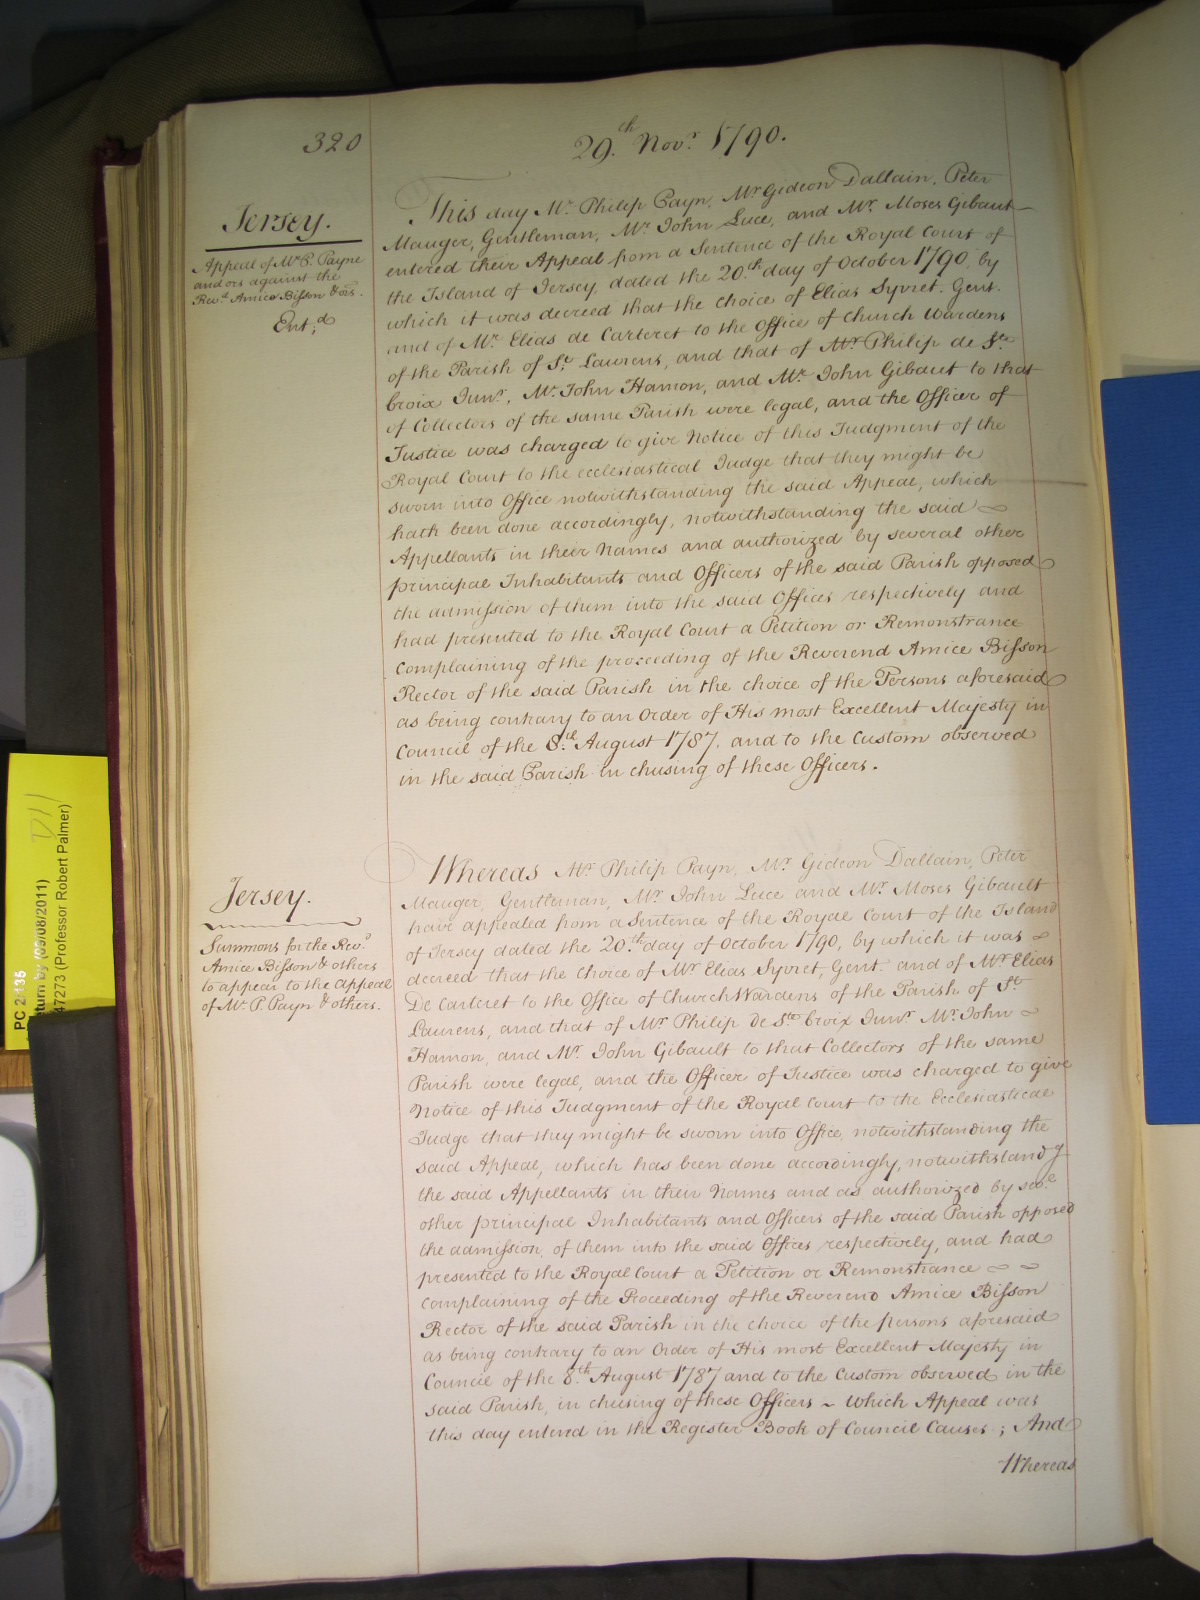 320
29.th Novr. 1790.
Jersey.
Appeal of Mr. P. Payne
and ors against the
Revd. Amice Bisson & ors.
Ent;d
This day Mr. Philip Payn, Mr Gideon Dallain, Peter
Mauger, Gentleman, Mr. John Luce, and Mr. Moses Gibaut
entered their Appeal from a Sentence of the Royal Court of
the Island of Jersey, dated the 20.th day of October 1790, by
which it was decreed that the choice of Elias Syvret. Gent.
and of Mr. Elias de Carteret to the Office of Church Wardens
of the Parish of St. Laurens, and that of Mr Philip de Ste.
Croix Junr., Mr. John Hamon, and Mr. John Gibaut to that
of Collectors of the same Parish were legal, and the Officer of
Justice was charged to give Notice of this Judgment of the
Royal Court to the ecclesiastical Judge that they might be
sworn into Office notwithstanding the said Appeal, which
hath been done accordingly, notwithstanding the said
Appellants in their Names and authorized by several other
principal Inhabitants and Officers of the said Parish opposed
the admission of them into the said Offices respectively and
had presented to the Royal Court a Petition or Remonstrance
complaining of the proceeding of the Reverend Amice Bisson
Rector of the said Parish in the choice of the Persons aforesaid
as being contrary to an Order of His most Excellent Majesty in
Council of the 8.th August 1787. and to the Custom observed
in the said Parish in chusing of these Officers.
Jersey.
Summons for the Revd.
Amice Bisson & others
to appear to the Appeal
of Mr. P. Payn & others.
Whereas Mr Philip Payn, Mr. Gideon Dallain, Peter
Mauger, Gentleman, Mr. John Luce and Mr. Moses Gibault
have appealed from a Sentence of the Royal Court of the Island
of Jersey dated the 20.th day of October 1790, by which it was
decreed that the choice of Mr Elias Syvret, Gent. and of Mr. Elias
De Carteret to the Office of Church Wardens of the Parish of St.
Laurens, and that of Mr Philip De Ste. Croix Junr. Mr. John
Hamon, and Mr. John Gibault to that Collectors of the same
Parish were legal, and the Officer of Justice was charged to give
Notice of this Judgment of the Royal Court to the Ecclesiastical
Judge that they might be sworn into Office, notwithstanding the
said Appeal, which has been done accordingly, notwithstandg
the said Appellants in their Names and as authorized by sevl.
other principal Inhabitants and Officers of the said Parish opposed
the admission, of them into the said Offices respectively, and had
presented to the Royal Court a Petition or Remonstrance
complaining of the Proceeding of the Reverend Amice Bisson
Rector of the said Parish in the choice of the persons aforesaid
as being contrary to an Order of His most Excellent Majesty in
Council of the 8.th August 1787 and to the Custom observed in the
said Parish, in chusing of these Officers ~ which Appeal was
this day entered in the Register Book of Council Causes; And
Whereas
PC 2/135
turn by (09/08/2011)
47273 (Professor Robert Palmer)
D11